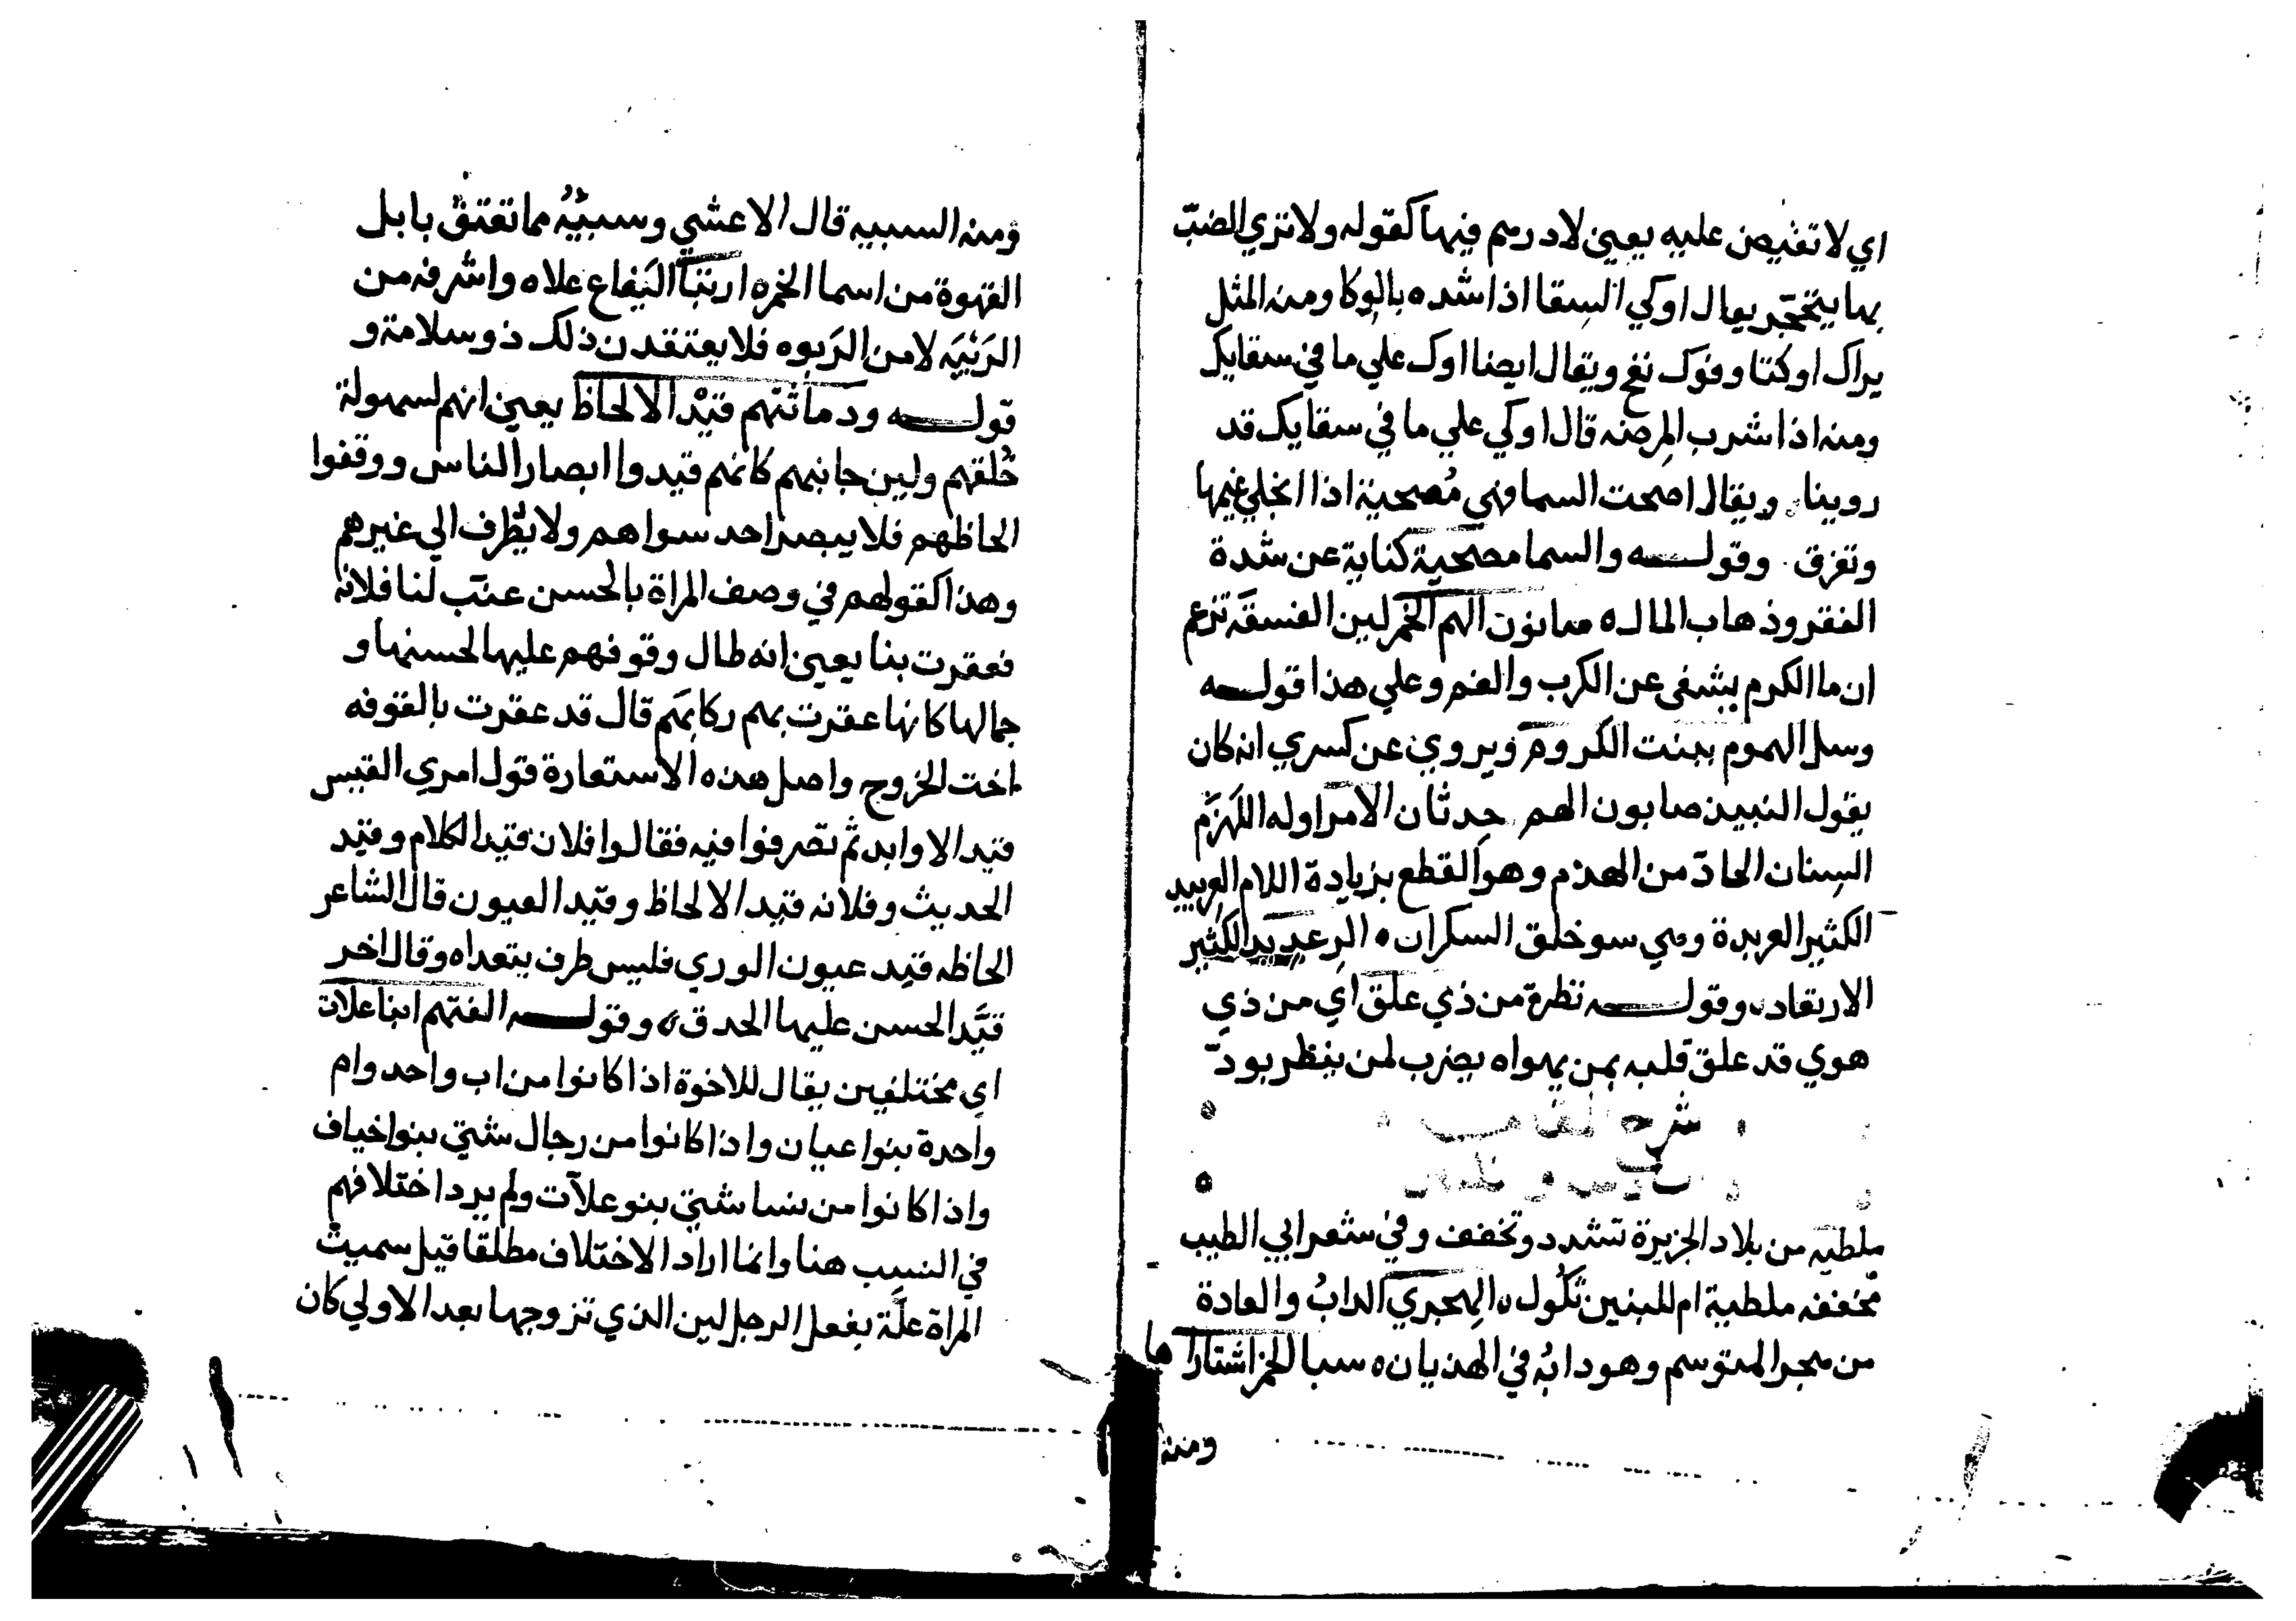 اي لا تفيض عليه يعني لا درهم فيها كقوله ولا تري الضبّ
بها ينحجر يقال اوكي السقا اذا شده بالوكا ومنه المثل
يداك اوكتا وفوك نفخ ويقال ايضا اوك علي ما في سقايك
ومنه اذا شرب المرضه قال اوكي علي ما في سقايك قد
روينا ويقال اصحت السما فهي مُصحية اذا انجلي غيمها
وتفرق وقولــه والسما مصحية كناية عن شدة
الفقر وذهاب المال ه صابون الهم الخمر لين الفسقة تزعم
ان ما الكرم يشفي عن الكرب والغم وعلي هذا قولــه
وسل الهموم ببنت الكروم ويروي عن كسري انه كان
يقول النبيذ صابون الهم حِدثان الامر اوله اللَهزَم
السِنان الحادّ من الهدم وهو القطع بزيادة اللام العِربيد
الكثير العربدة وهي سو خلق السكران ه الرِعديد الكثير
الارتعاد، وقولــه نظرة من ذي علق اي من ذي
هوي قد علق قلبه بمن يهواه يضرب لمن ينظر بودّ
شرح المقامه
ملطيه من بلاد الجزيرة تشدد وتخفف وفي شعر ابي الطيب
مخففه ملطية ام للبنين ثكُول ه الهجيري الدابُ والعادة
من هجر المتوسم وهو دابُه في الهذيان ه سبا الخمر اشتراها
ومنه
ومنه السبيه قال الاعشي وسبيّه مما تعتق بابل
القهوة من اسما الخمره ارتبا اليَفاع علاه واشرفه من
الرَبيَه لا من الرَبوه فلا يعتقدن ذلك ذو سلامة و
قولــه ودماثتهم قيْد الالحاظ يعني انهم لسهولة
خُلقهم ولين جانبهم كانهم قيدوا ابصار الناس ووقفوا
الحاظهم فلا يبصر احد سواهم ولا يطرف الي غيرهم
وهذا كقولهم في وصف المراة بالحسن عنّت لنا فلانه
فعقرت بنا يعني انه طال وقوفهم عليها لحسنها و
جمالها كانها عقرت بهم ركابهَم قال قد عقرت بالقوم
اخت الخزرج واصل هذه الاستعارة قول امري القيس
قيد الاوابد ثم تصرفوا فيه فقالوا فلان قيد الكلام وقيد
الحديث وفلانه قيد الالحاظ وقيد العيون قال الشاعر
الحاظه قيد عيون الوري فليس طرف يتعداه وقال اخر
قيَّد الحسن عليها الحدق ه وقولــه الفتهم ابنا علات
اي مختلفين يقال للاخوة اذا كانوا من اب واحد وام
واحدة بنوا عيان واذا كانوا من رجال شتي بنو اخياف
واذا كانوا من نسا شتي بنو علّات ولم يرد اختلافهم
في النسب هنا وانما اراد الاختلاف مطلقا قيل سميت
المراة علّة بفعل الرجل لين الذي تزوجها بعد الاولي كان